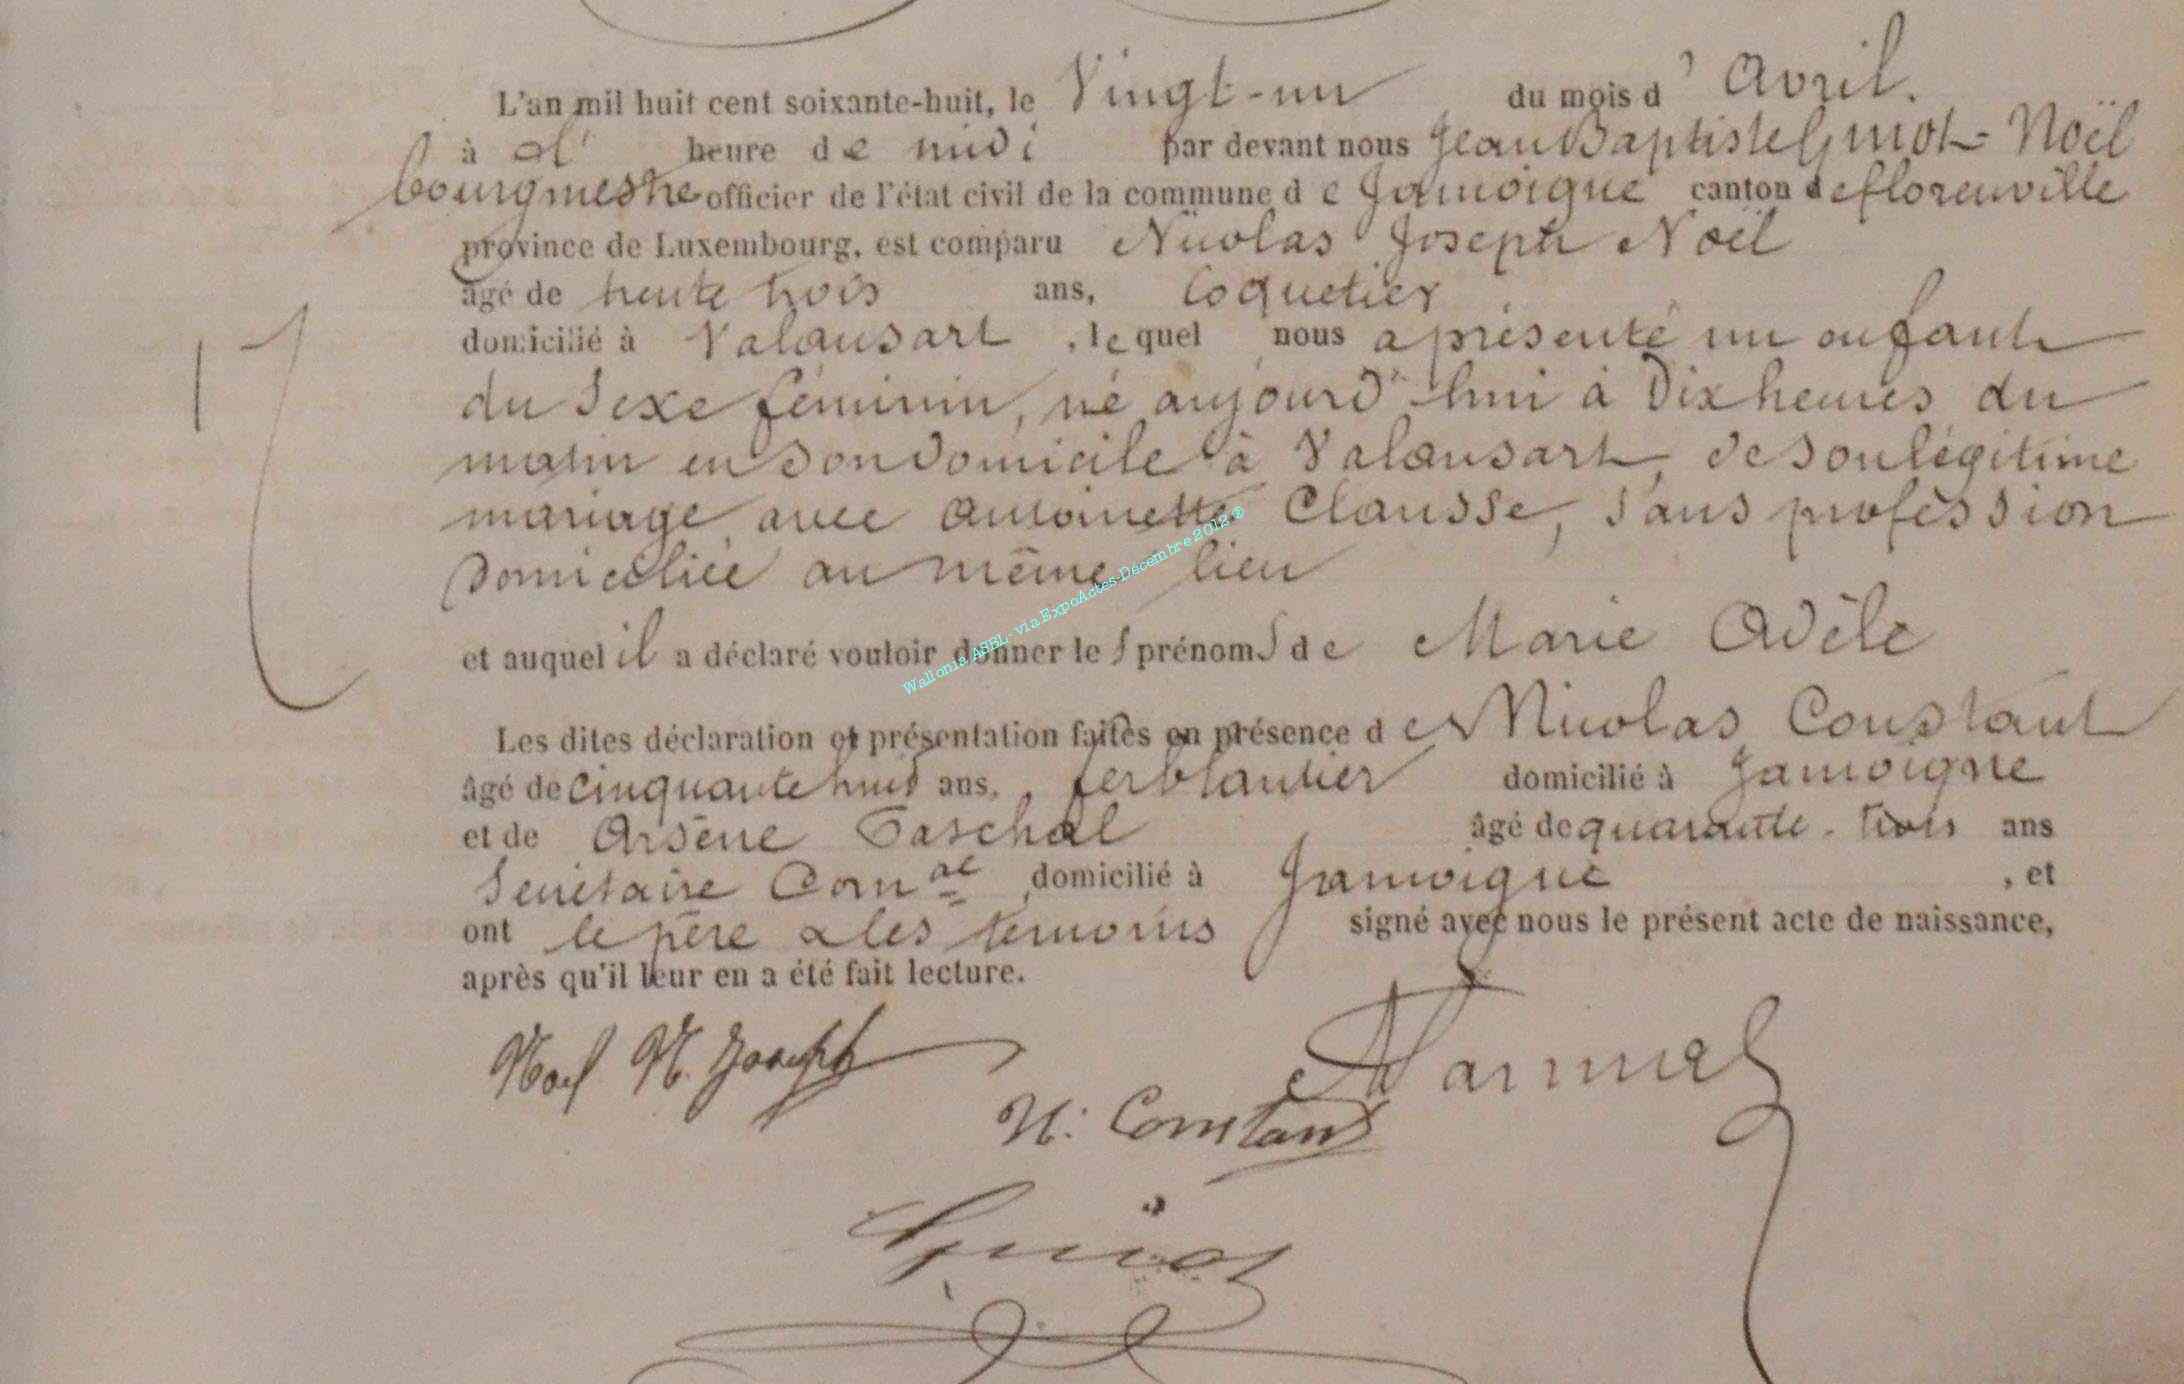 L'an mil huit cent soixante-huit, le Vingt-un du mois d'Avril.
à l' heure de midi par devant nous Jean Baptiste Guiot-Noël
bourgmestre officier de l'état civil de la commune de Jamoigne canton de florenville
province de Luxembourg, est comparu Nicolas Joseph Noël
âgé de trente trois ans, Coquetier
domicilié à Valansart, lequel nous a présenté un enfant
du Sexe féminin, né aujourd'hui à Dix heures du
matin en son domicile à Valansart, de son légitime
mariage avec Antoinette Clausse, sans profession
domiciliée au même lieu
et auquel il a déclaré vouloir donner les prénoms de Marie Adèle
Les dites déclaration et présentation faites en présence de Nicolas Constant
âgé de cinquante huit ans, ferblantier domicilié à Jamoigne
et de Arsène Paschal âgé de quarante-trois ans
Secrétaire Com.al domicilié à Jamoigne, et
ont le père & les témoins signé avec nous le présent acte de naissance,
après qu'il leur en a été fait lecture.
Noel N. Joseph
N. Constant
Guiot
Wallonia ASBL - via ExpoActes-Décembre 2012 ®